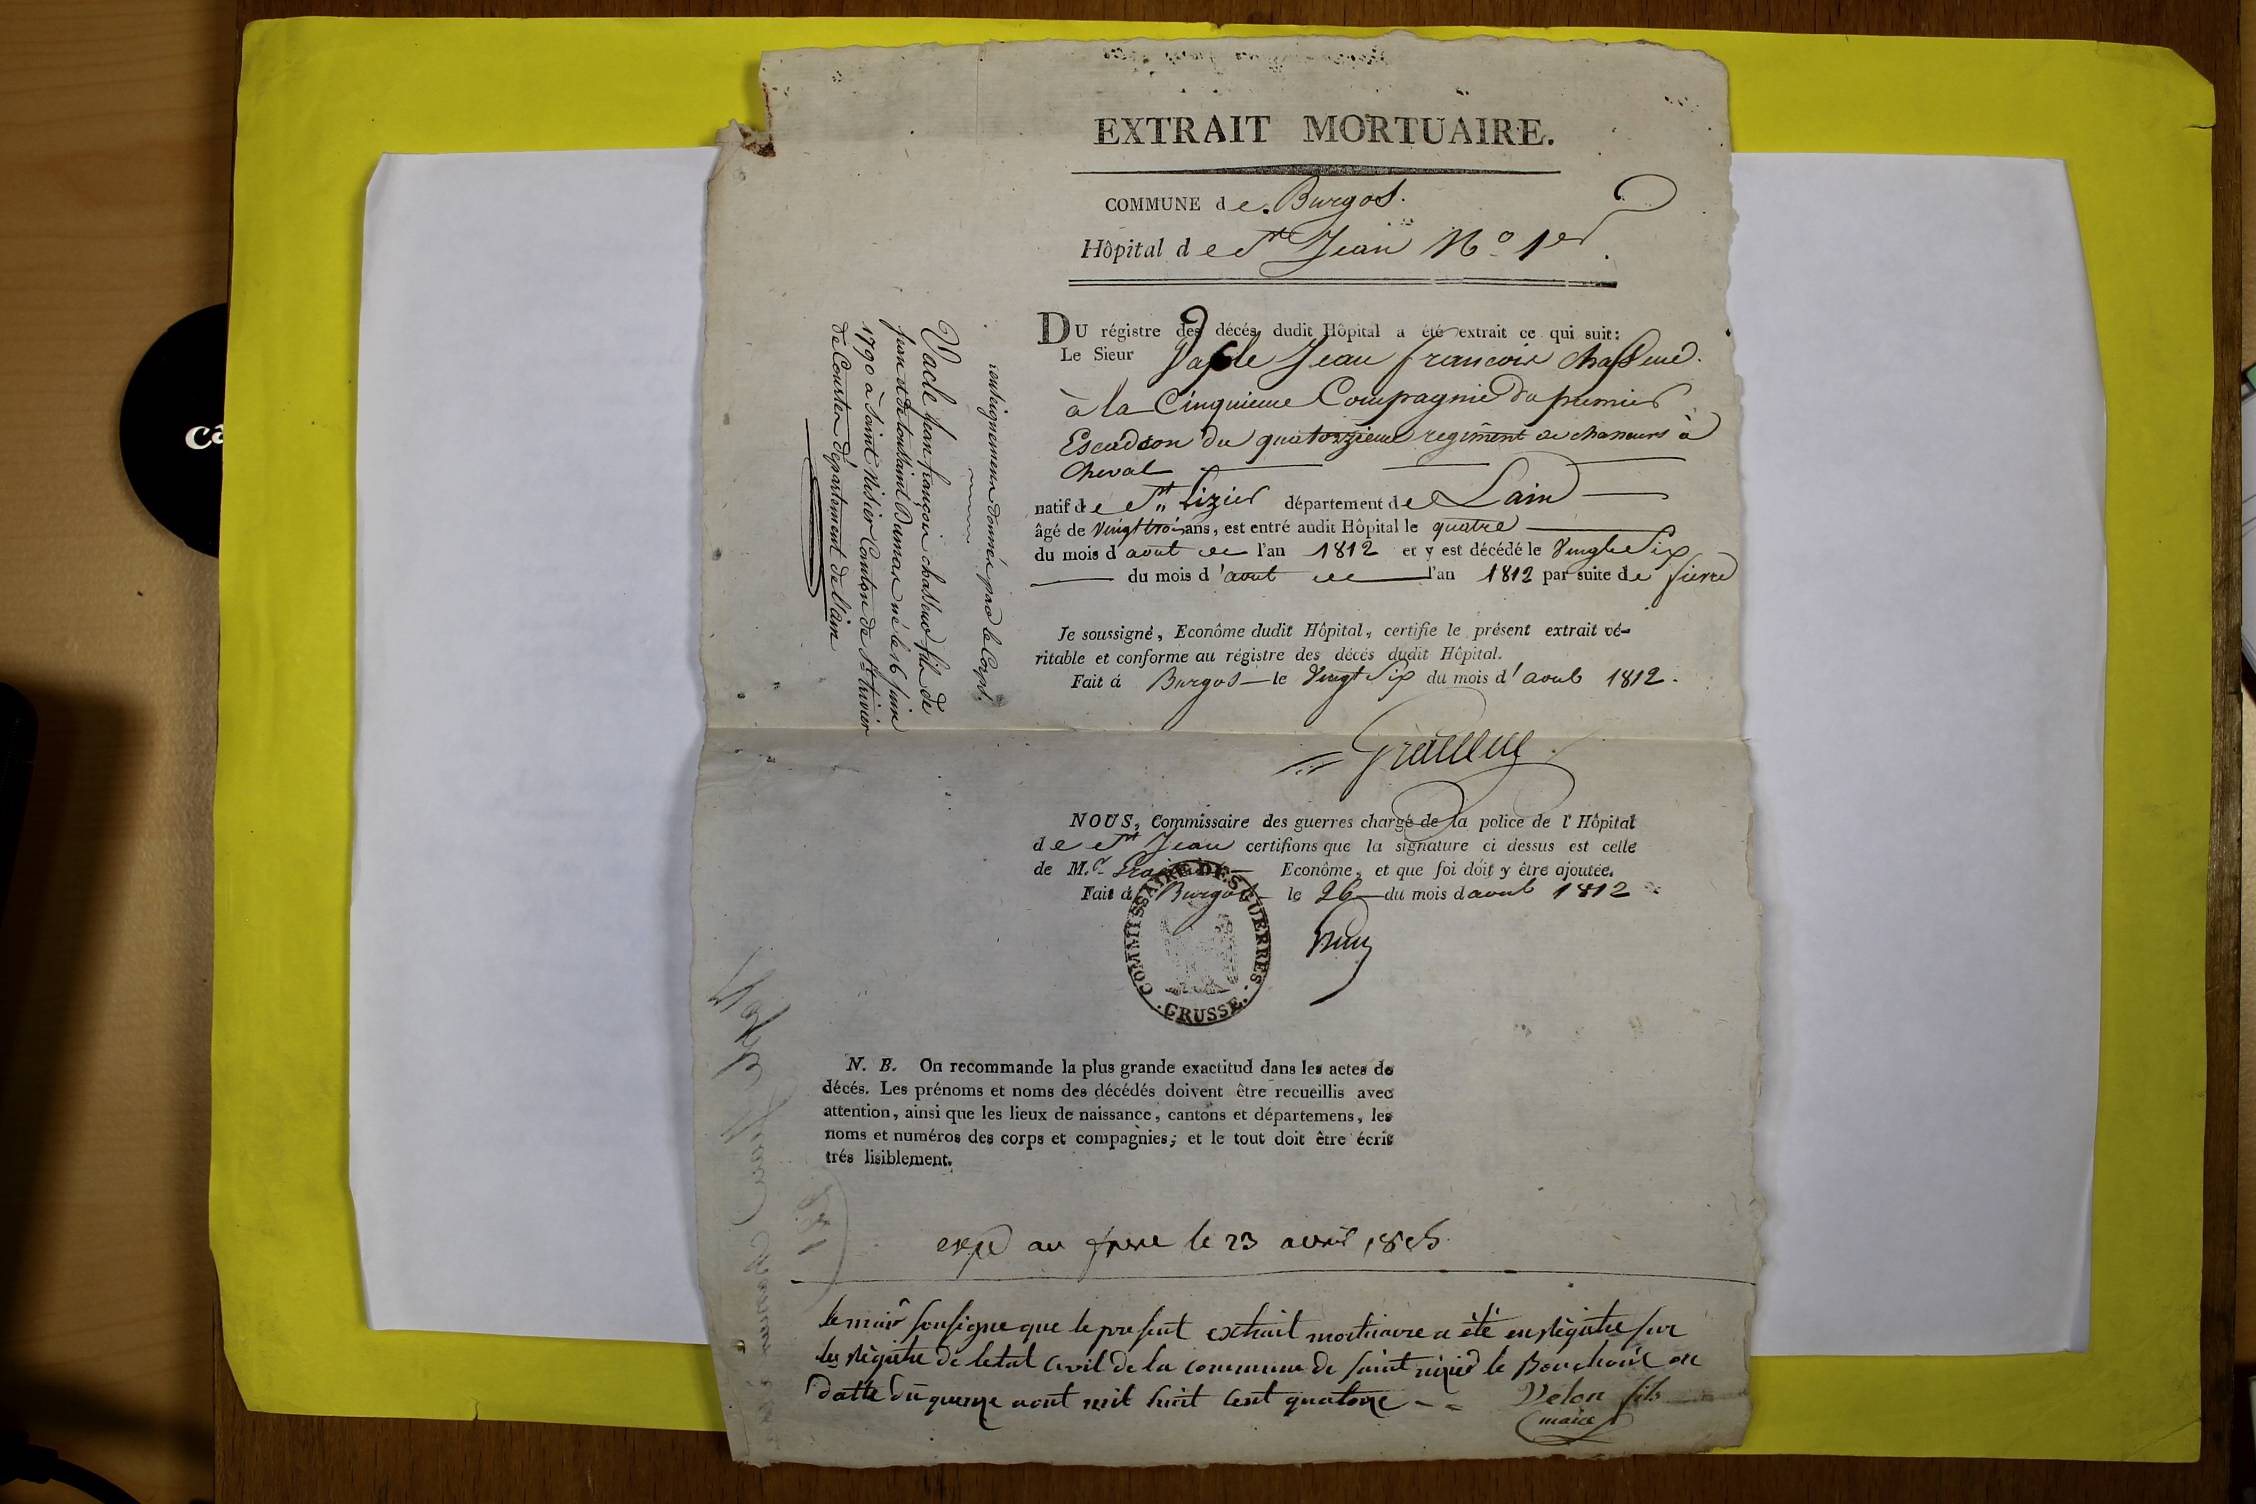 EXTRAIT MORTUAIRE.
COMMUNE de Burgos.
Hôpital de St Jean No 1er
DU régistre des décés dudit Hôpital a été extrait ce qui suit:
Le Sieur Jean francois chasseur
à la Cinquieme Compagnie du premier
Escadron du quatorzieme regiment de chasseurs à
cheval
natif de St. Lizier département de Lain
âgé de vingt trois ans, est entré audit Hôpital le quatre
du mois d'aout de l'an 1812 et y est décédé le vingt Six
du mois d'aout de l'an 1812 par suite de fievre
Je soussigné, Econôme dudit Hôpital, certifie le présent extrait vé-
ritable et conforme au régistre des décés dudit Hôpital.
Fait á Burgos le vingt Six du mois d'aout 1812.
NOUS, Commissaire des guerres chargé de la police de l'Hôpital
de St Jean certifions que la signature ci dessus est celle
de M.r Econôme, et que foi dóit y être ajoutée.
Fait á Burgos le 26 du mois d'aout 1812
COMMISSAIRE DES GUERRES
CRUSSE.
N. B. On recommande la plus grande exactitud dans les actes de
décés. Les prénoms et noms des décédés doivent être recueillis avec
attention, ainsi que les lieux de naissance, cantons et départemens, les
noms et numéros des corps et compagnies; et le tout doit être écrit
trés lisiblement.
renseignemens donnés par le Corps.
Vacle jean françois chasseur fils de
jean et de toussaint Dumas né le 16 juin
1790 à Saint Nisier Canton de St trivier
de Courten département de l'ain
expé au frere le 23 avril
le maire sousigne que le present extrait mortuaire a été enregistre sur
les registre de letat civil de la commune de saint nizier le Bouchoux en
datte du quinze aout mil huit cent quatorze
Velon fils
maire